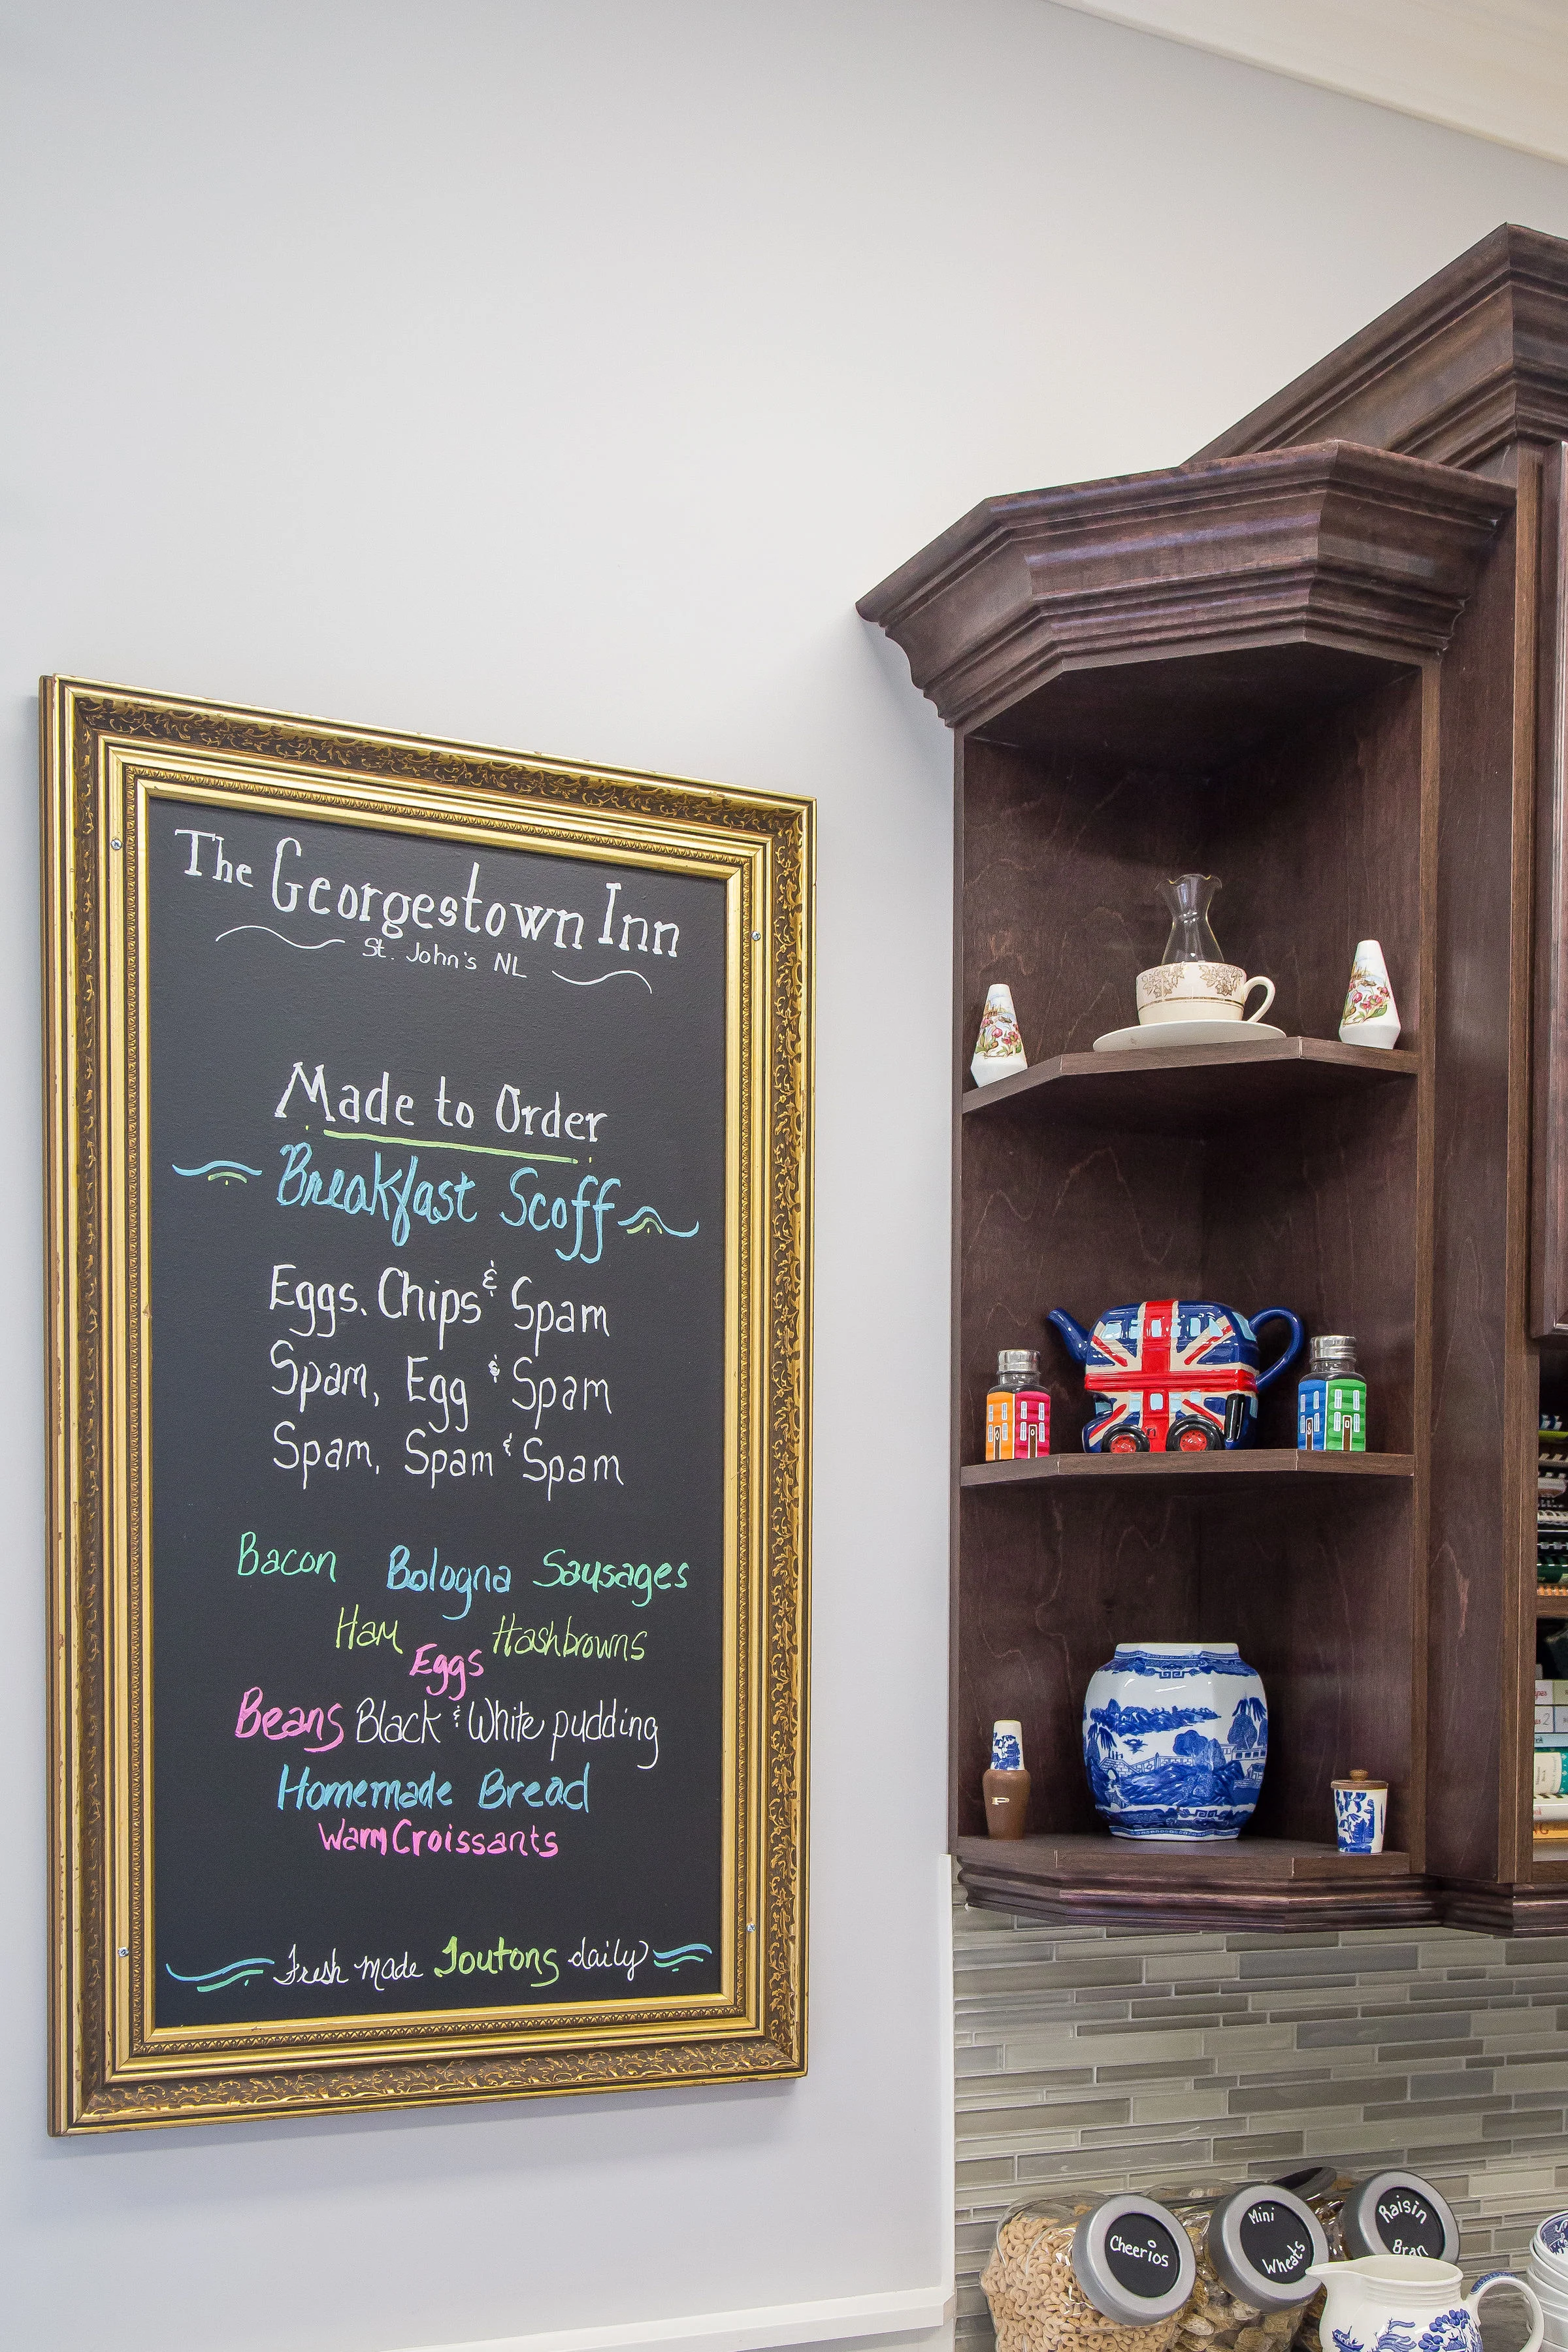 The Georgestown Inn
St. John's NL
Made to Order
Breakfast Scoff
Eggs. Chips & Spam
Spam, Egg & Spam
Spam, Spam & Spam
Bacon Bologna Sausages
Ham Hashbrowns
Eggs
Beans Black & White pudding
Homemade Bread
Warm Croissants
Fresh made Toutons daily
P
Cheerios
Mini
Wheats
Raisin
Bran